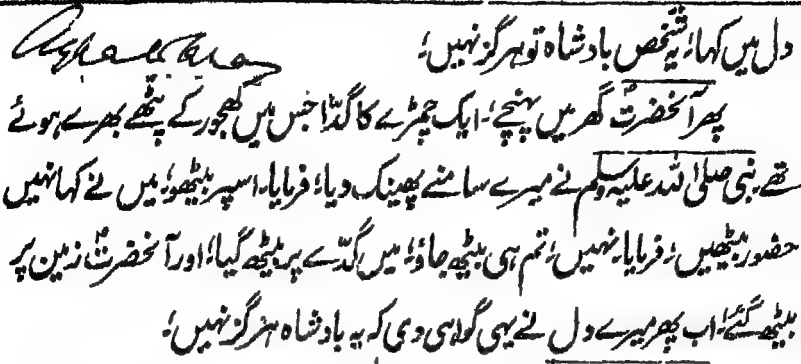 دل میں کہا، یہ شخص بادشاہ تو ہرگز نہیں؛
پھر آنحضرتؐ گھر میں پہنچے؛ ایک چمڑے کا گدّا جس میں کھجور کے پٹھے بھرے ہوئے
تھے نبی صلی اللہ علیہ وسلم نے میرے سامنے پھینک دیا؛ فرمایا۔ اسپر بیٹھو؛ میں نے کہا نہیں
حضور بیٹھیں؛ فرمایا۔ نہیں؛ تم ہی بیٹھ جاؤ؛ میں گدّے پر بیٹھ گیا؛ اور آنحضرتؐ زمین پر
بیٹھ گئے؛ اب پھر میرے دل نے یہی گواہی دی کہ یہ بادشاہ ہرگز نہیں؛